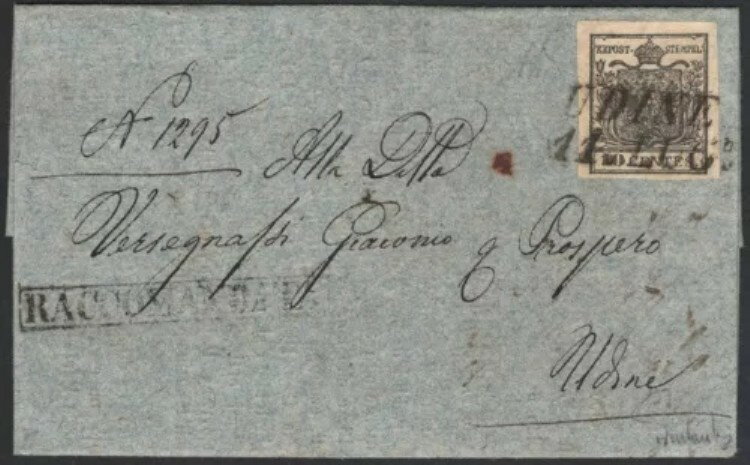 KKPOST-STEMPEL
UDINE
11 LUG
10 CENTES
N 1295
Alla Ditta
Versegnassi Giacomo e Prospero
RACCOMANDATA
Udine